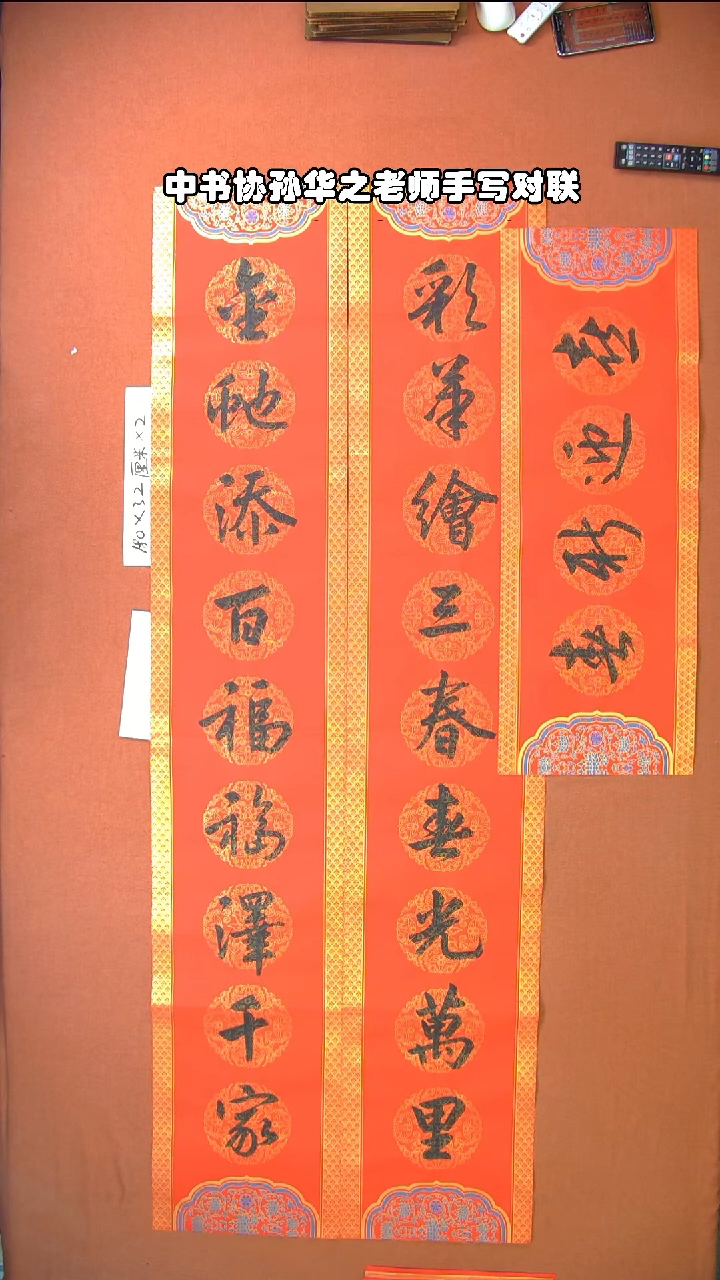 中书协孙华之老师手写对联
喜迎新春
彩筆繪三春春光萬里
金虵添百福福澤千家
180×32厘米×2